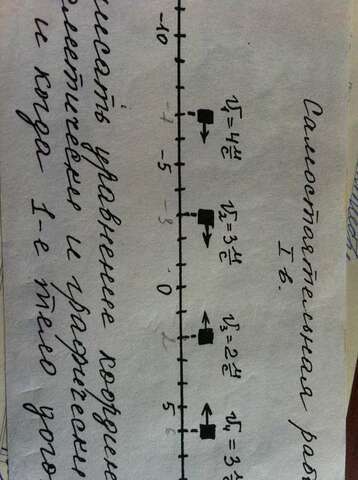 Самостоятельная раб
I в.
v₁=4 м/с v₂=3 м/с v₃=2 м/с v₄=3 м
-10 -7 -5 -3 0 2 5 6
писать уравнение координ
алитически и графически
и когда 1-е тело дого